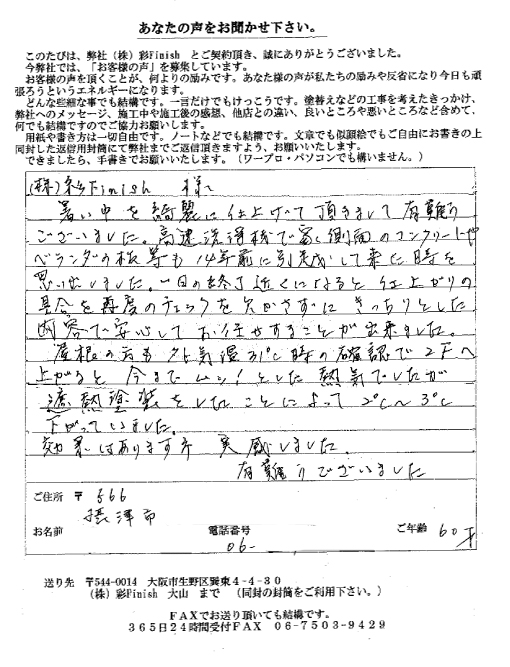 あなたの声をお聞かせ下さい。
このたびは、弊社（株）彩Finish とご契約頂き、誠にありがとうございました。
今弊社では、「お客様の声」を募集しています。
お客様の声を頂くことが、何よりの励みです。あなた様の声が私たちの励みや反省になり今日も頑
張ろうというエネルギーになります。
どんな些細な事でも結構です。一言だけでもけっこうです。塗替えなどの工事を考えたきっかけ、
弊社へのメッセージ、施工中や施工後の感想、他店との違い、良いところや悪いところなど含めて、
何でも結構ですのでご協力お願いします。
用紙や書き方は一切自由です。ノートなどでも結構です。文章でも似顔絵でもご自由にお書きの上
同封した返信用封筒にて弊社までご返信頂きますよう、お願いいたします。
できましたら、手書きでお願いいたします。（ワープロ・パソコンでも構いません。）
(株)彩Finish 様へ
暑い中を綺麗に仕上げて頂きまして有難う
ございました。高速洗浄機で家側面のコンクリートや
ベランダの板等も14年前に引越して来た時を
思い出しました。一日の終了近くになると仕上がりの
具合を再度のチェックを欠かさずにきっちりとした
内容で安心してお任せすることが出来ました。
屋根の方も外気温31℃時の確認で2Fへ
上がると今までムッ!とした熱気でしたが
遮熱塗装をしたことによって2℃〜3℃
下がっていました。
効果はありますネ 実感しました。
有難うございました
ご住所 〒 566
摂津市
お名前 電話番号 ご年齢 60才
06-
送り先 〒544-0014 大阪市生野区巽東4-4-30
（株）彩Finish 大山 まで （同封の封筒をご利用下さい。）
FAXでお送り頂いても結構です。
365日24時間受付FAX 06-7503-9429